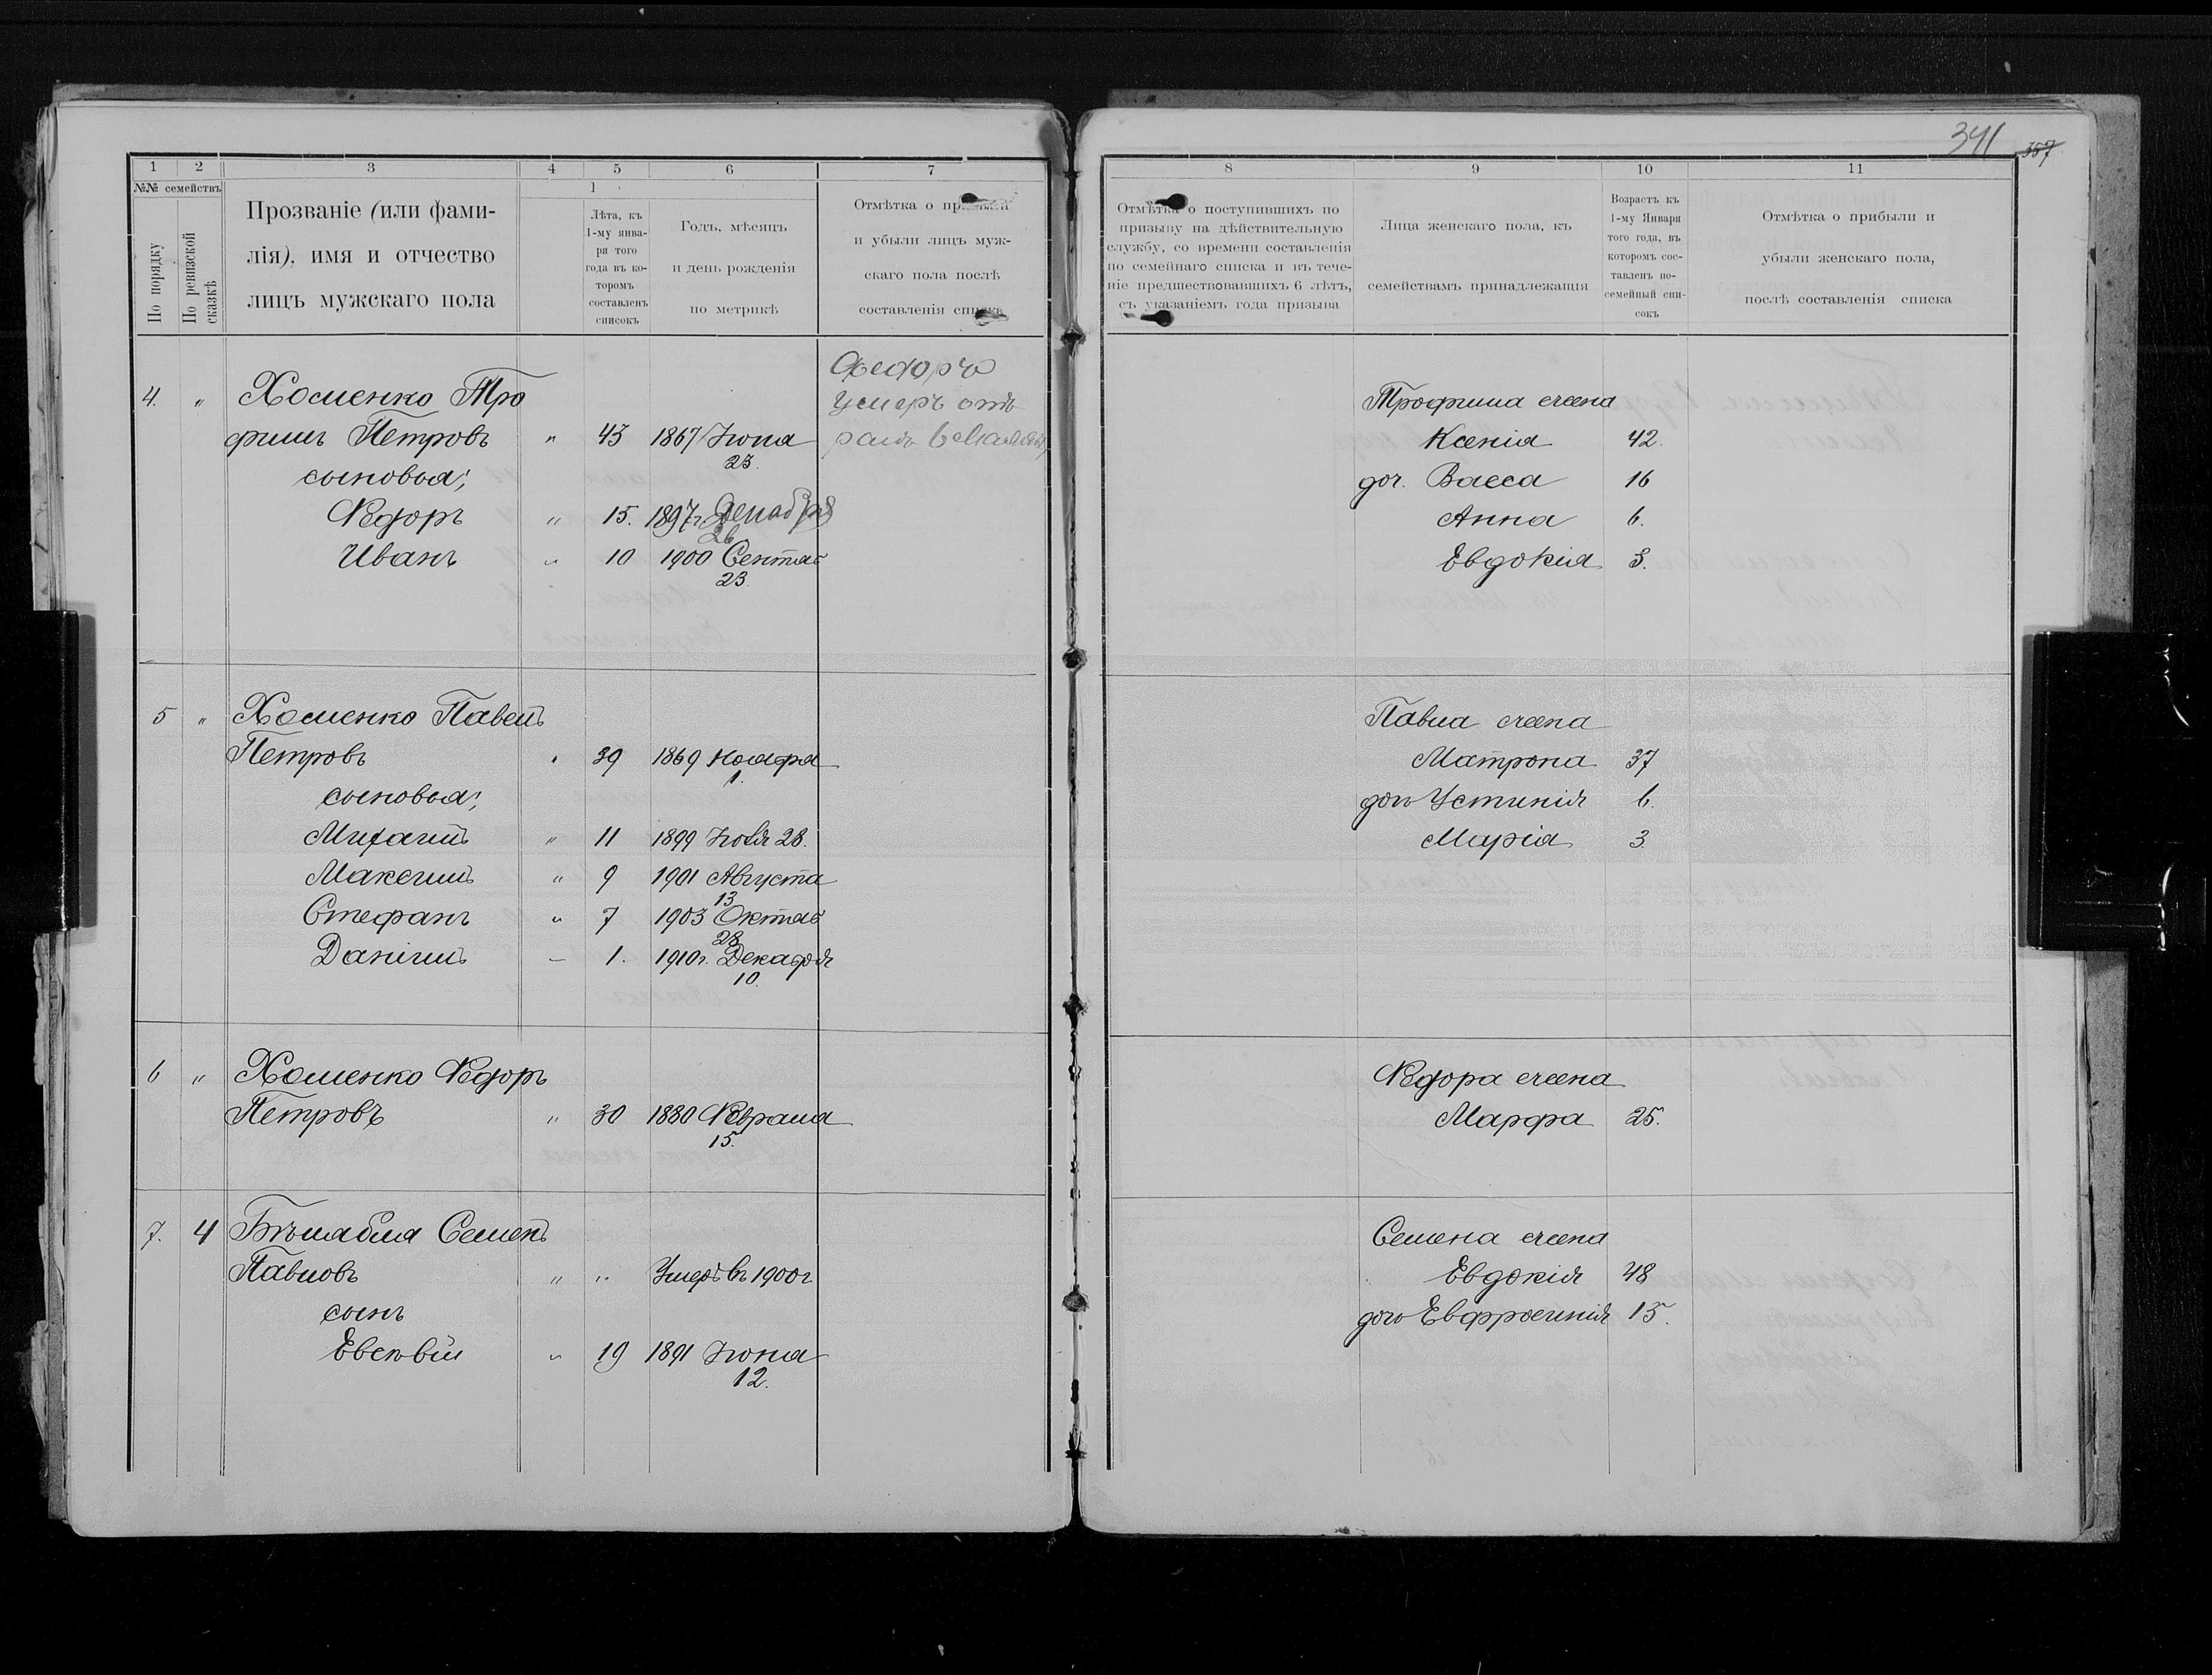 341 357
1 2 3 4 5 6 7
№№ семействъ
По порядку
По ревизской сказкѣ
Прозваніе (или фами-
лія), имя и отчество
лицъ мужскаго пола
1
Лѣта, къ
1-му янва-
ря того
года въ ко-
торомъ
составленъ
списокъ
Годъ, мѣсяцъ
и день рожденія
по метрикѣ
Отмѣтка о
и убыли лицъ муж-
скаго пола послѣ
составленія списка
4. " Хоменко Тро
фимъ Петровъ " 43 1867 Іюна
23.
сыновья;
Ѳедоръ " 15. 1897г Декабря
26
Иванъ " 10 1900 Сентяб
23.
Федоръ
Умеръ отъ
ранъ
5 " Хоменко Павелъ
Петровъ " 39 1869 Ноября
1.
сыновья;
Михаилъ " 11 1899 Ноября 28.
Максимъ " 9 1901 Августа
13
Стефанъ " 7 1903 Октяб
28
Даніилъ — 1. 1910г. Декабря
10.
6 " Хоменко Ѳедоръ
Петровъ " 30 1880 Февраля
15.
7. 4 Семенъ
Павловъ " " Умеръ въ 1900г
сынъ
Евсѣвій " 19 1891 Іюна
12.
8 9 10 11
Отмѣтка о поступившихъ по
призыву на дѣйствительную
службу, со времени составленія
по семейнаго списка и въ тече-
ніе предшествовавшихъ 6 лѣтъ,
съ указаніемъ года призыва
Лица женскаго пола, къ
семействамъ принадлежащія
Возрастъ къ
1-му Января
того года, въ
которомъ сос-
тавленъ по-
семейный спи-
сокъ
Отмѣтка о прибыли и
убыли женскаго пола,
послѣ составленія списка
Трофима жена
Ксенія 42.
доч. Васса 16
Анна 6.
Евдокія 3.
Павла жена
Матрона 37
доч Устинія 6.
Марія 3.
Ѳедора жена
Марфа 25.
Семена жена
Евдокія 48
доч Евфросинія 15.